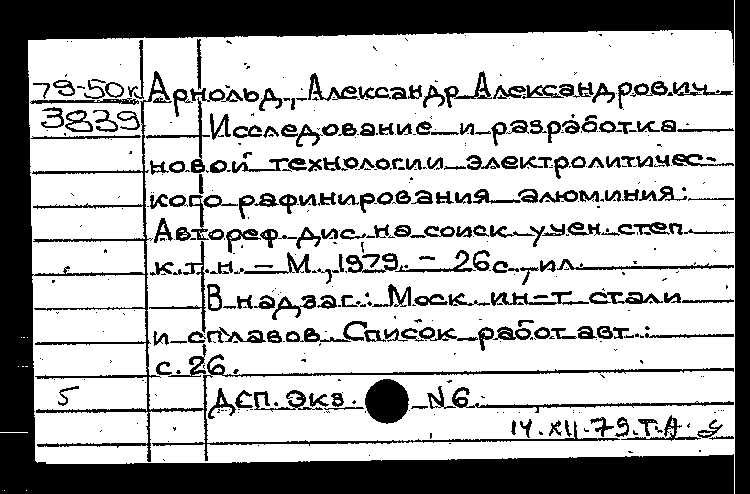 79-50к Арнольд, Александр Александрович
3839 Исследование и разработка
новой технологии электролитичес-
кого рафинирования алюминия:
Автореф. дис. на соиск. учен. степ.
к.т.н. – М., 1979. – 26с., ил.
В надзаг.: Моск. ин-т стали
и сплавов. Список работ авт.:
с. 26.
5 ДСП. Экз. N6.
14.XII.79.Т.А.